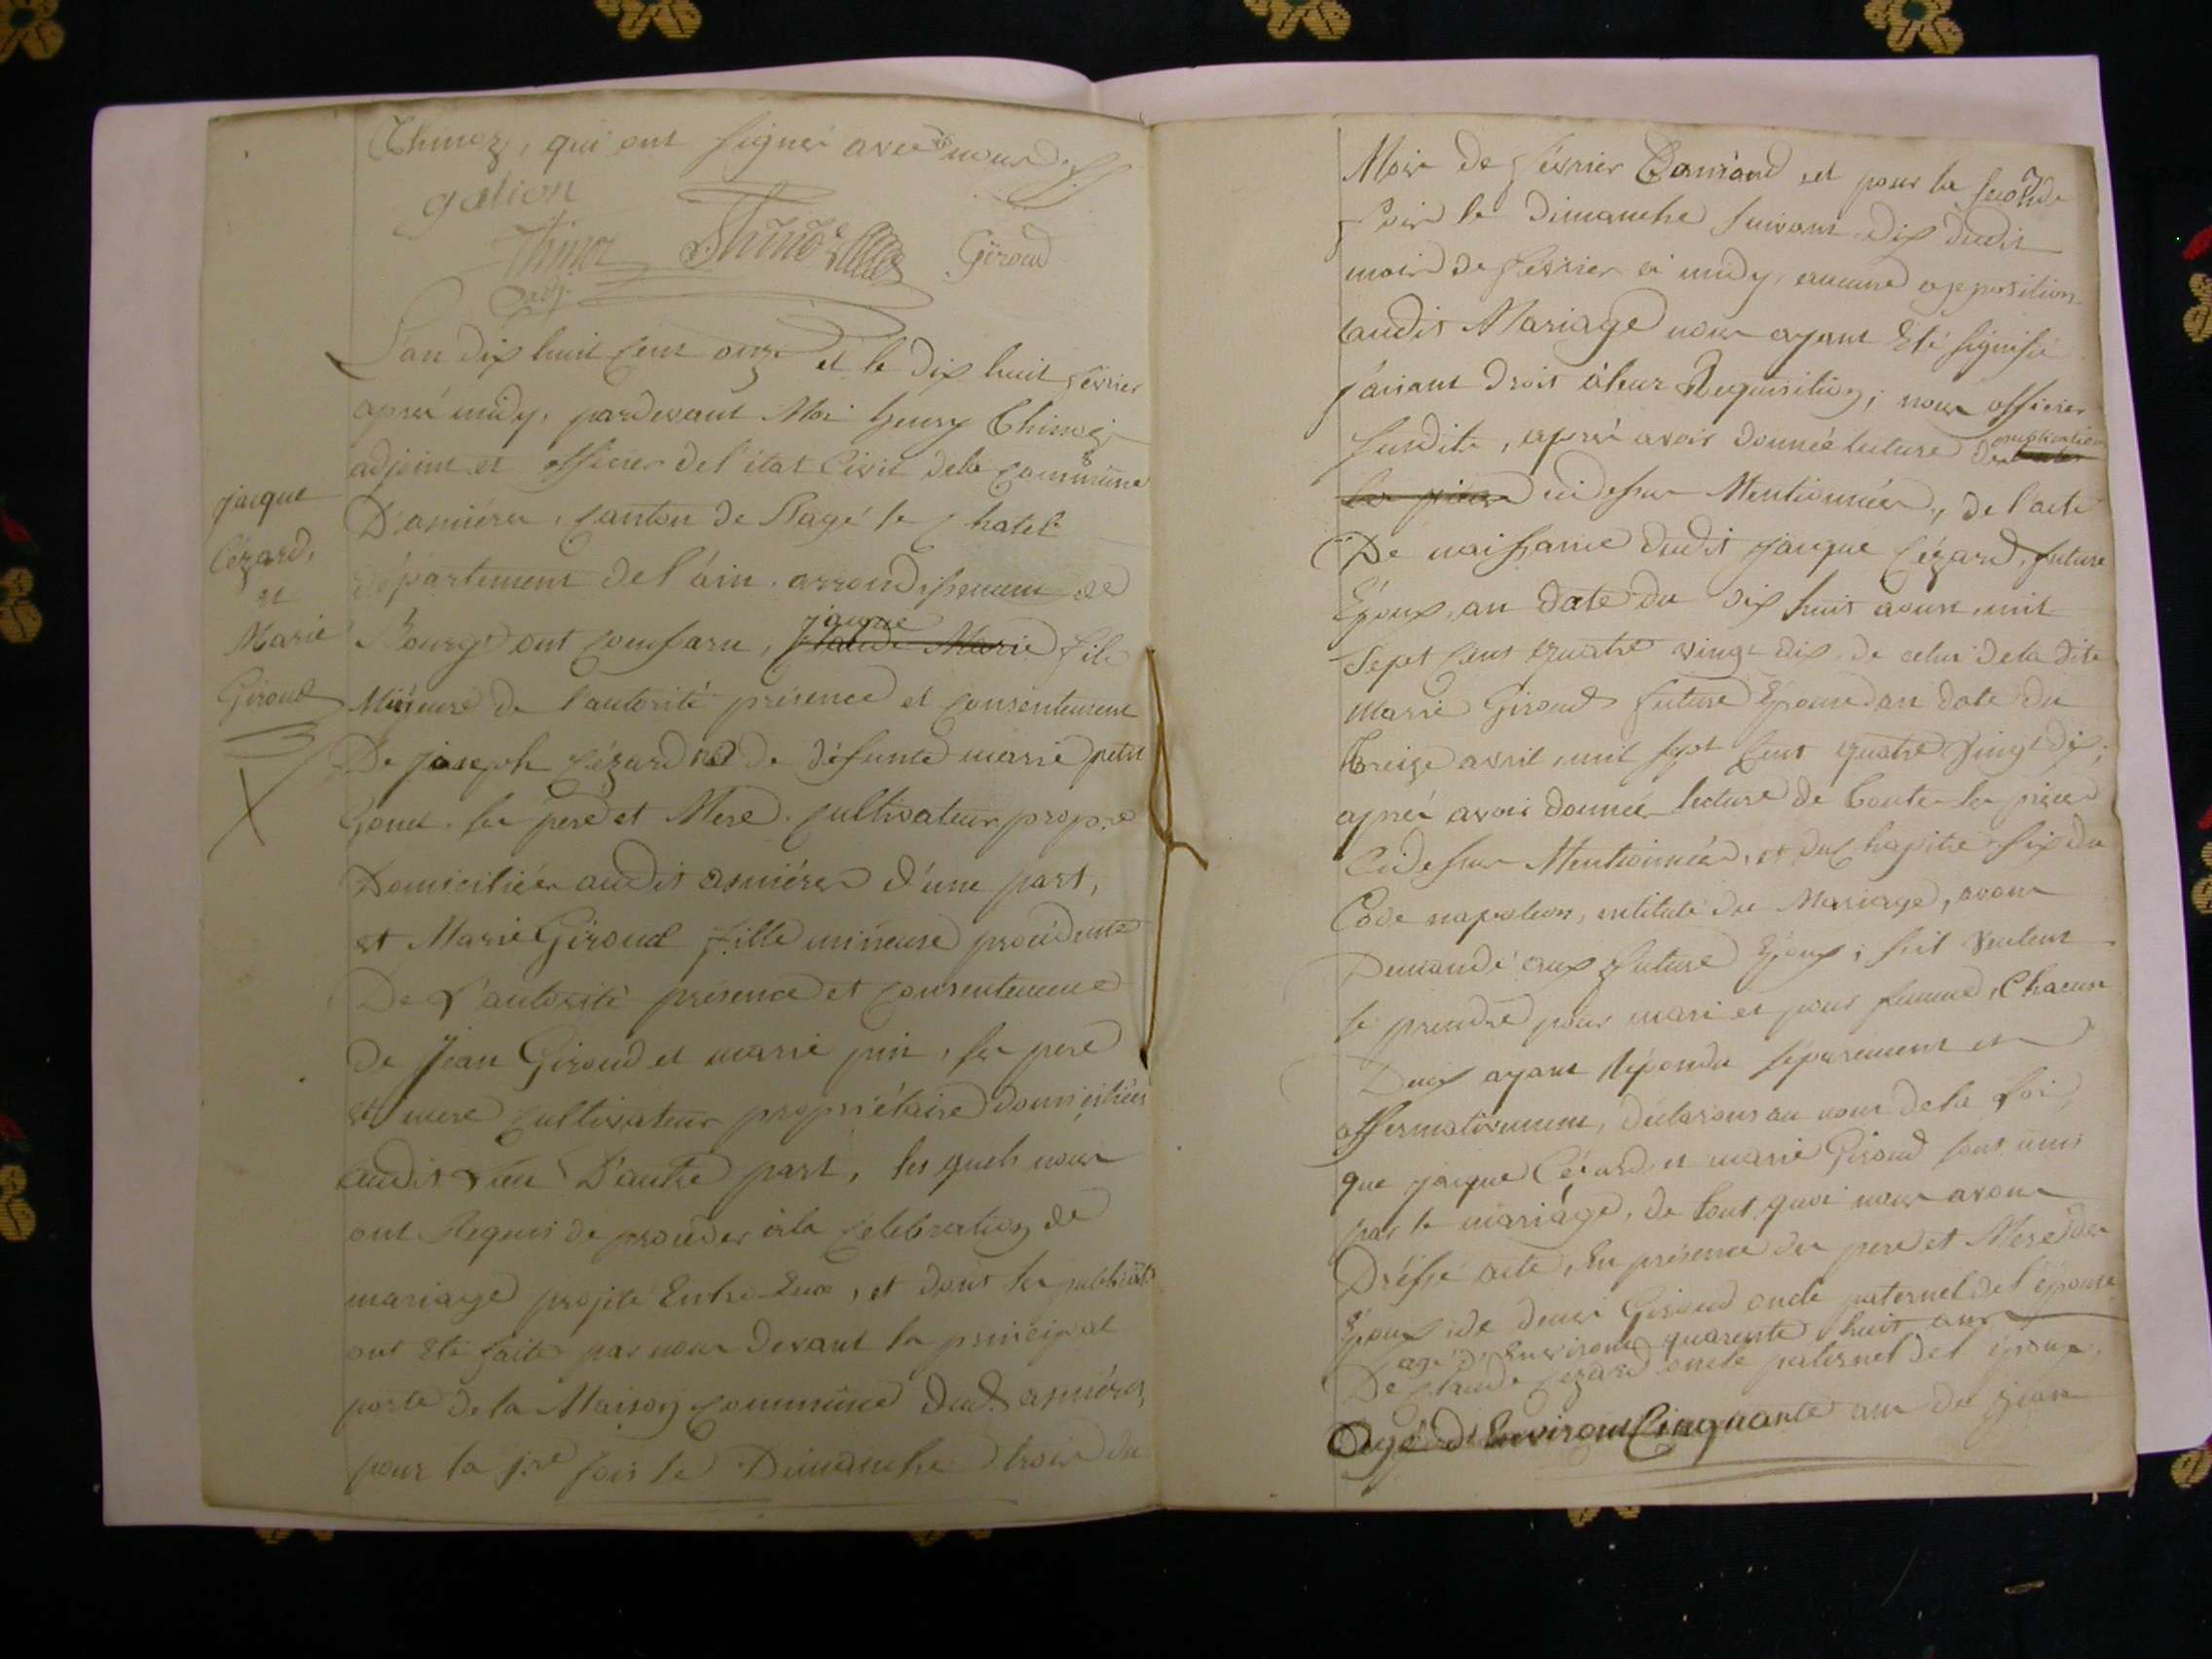 Thinoz, qui ont signés avec nous
gation
Thinoz Thinoz Giroud
adj.
L'an dix huit cent onze et le dix huit février
aprés midy, pardevant Moi henry Thinoz
adjoint et officier de l'état Civil de la Commune
D'asniéres, canton de Bagé le Chatel
département de l'ain, arrondissement de
Bourg ont comparu, jacque claude Marie fils
Mineure de l'autorité présence et consentement
De joseph Cézard et de défunte marie petit
Gonet, ses pere et Mere, cultivateur propre
Domiciliées audit asniéres d'une part,
et Marie Giroud fille mineuse procédente
De L'autorité présence et consentement
de Jean Giroud et marie pin, ses pere
et mere cultivateur propriétaire domiciliées
audit lieu D'autre part, les quels nous
ont Requis de procéder à la Celebration de
mariage projeté Entre Eux, et dont les publicat.
ont Eté faite par nous devant la principal
porte de la Maison commune dud. asniéres,
pour la 1re fois le Dimanche trois du
jacque
Cézard,
et
Marie
Giroud
Mois de février Courand, et pour la seconde
fois le dimanche suivant dix dudit
mois de février à midy, aucune opposition
audit Mariage nous ayant Eté signifié
faisant droit à leur Requisition; nous officier
susdite, aprés avoir donnée lecture des publications
les pièces cidessus Mentionnées, de l'acte
De naissance dudit jacque Cézard, future
Epoux, an date du dix huit aoust, mil
Sept Cens quatre vingt dix, de celui de la dite
Marie Giroud future Epouse an date du
treize avril, mil sept Cens quatre vingt dix;
aprés avoir donnée lecture de toutes les pièces
Cidessus Mentionnées, et du Chapitre six du
Code napoleon, intitulé du Mariage, avons
Demandé aux future Epoux, s'ils veulent
se prendre pour mari et pour femme, Chacun
Deux ayant Répondu séparement et
affermativement, déclarons au nom de la loi,
que jacque Cézard et marie Giroud sont unis
par le mariage, de tout quoi nous avons
Dréssé acte, En présence des pere et Mere des
Epoux, de denis Giroud oncle paternel de l'épouse
agé d'Environt quarente huit ans
De Claude Cezard oncle paternel de l'époux,
Agé d'Environt Cinquante ans de jean